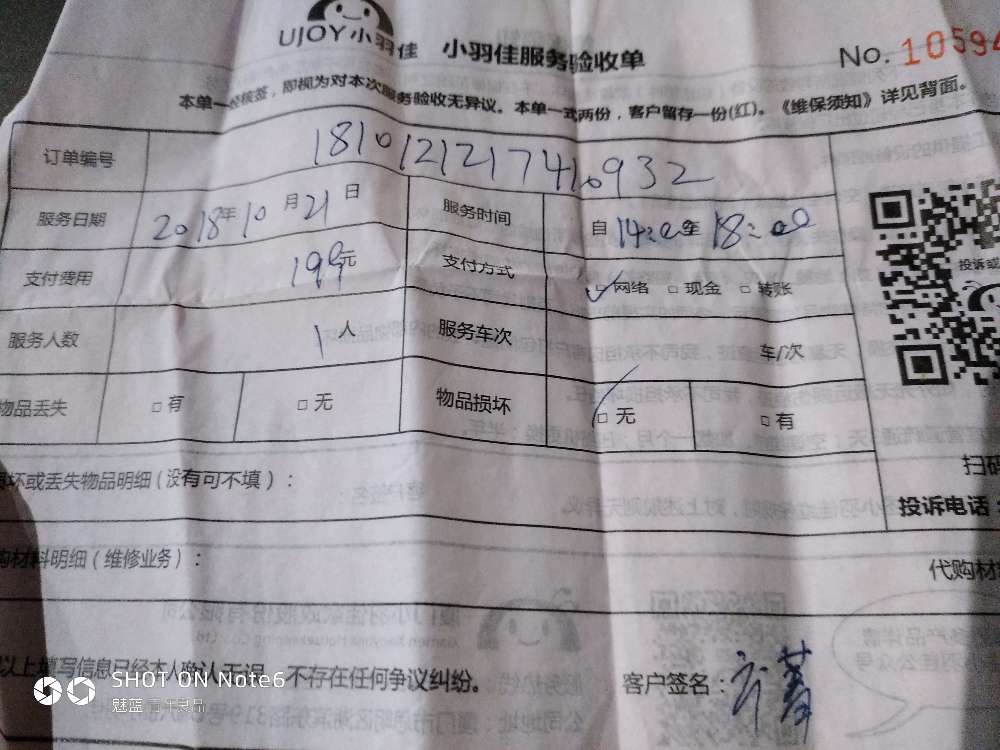 UJOY小羽佳 小羽佳服务验收单 No. 10594
本单一经核签，即视为对本次服务验收无异议。本单一式两份，客户留存一份(红)。《维保须知》详见背面。
订单编号 181012121741932
服务日期 2018年10月21日 服务时间 自14:00至18:00
支付费用 199元 支付方式 ☑网络 □现金 □转账
服务人数 1人 服务车次 车/次
物品丢失 □有 □无 物品损坏 ☑无 □有
坏或丢失物品明细(没有可不填)：
投诉电话：
购材料明细(维修业务)：
代购材
以上填写信息已经本人确认无误，不存在任何争议纠纷。 客户签名：
SHOT ON Note6
魅蓝 青年良品